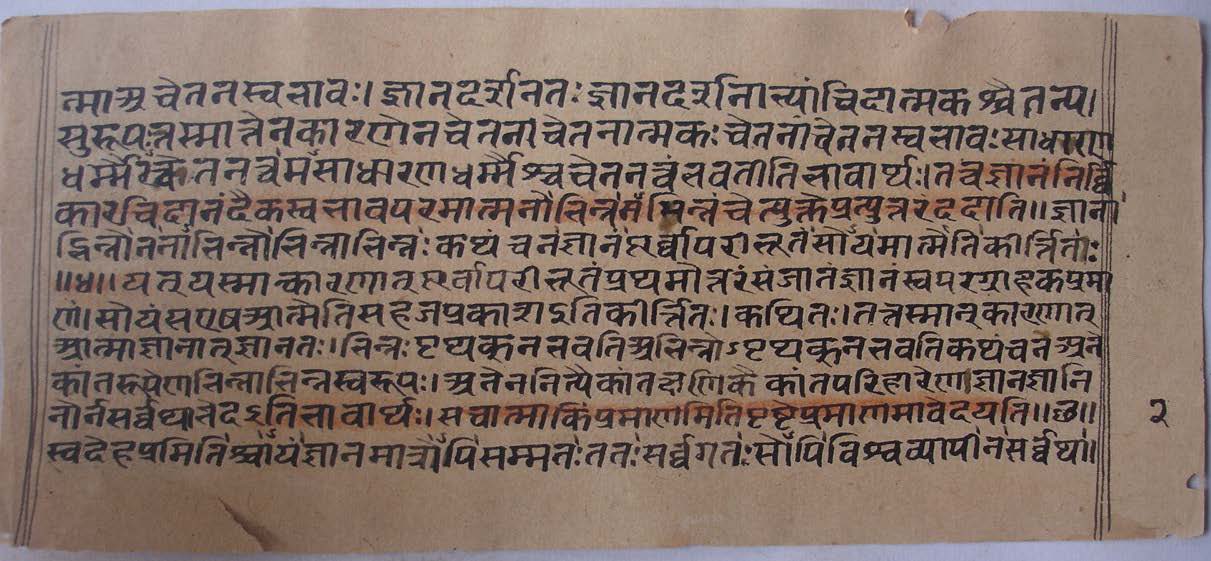 त्माअचेतनस्वभावः। ज्ञानदर्शनतः ज्ञानदर्शनाभ्यांचिदात्मकश्चैतन्य।
सुरूपःतस्मात्तेनकारणेनचेतनाचेतनात्मकः चेतनाचेतनस्वभावः साधारण
धर्म्मैरचेतनत्वंमसाधारणधर्म्मैश्चचेतनत्वंभवतीतिभावार्थः। तच्चज्ञानंनिर्वि
कारचिदानंदैकस्वभावपरमात्मनोभिन्नमभिन्नंचेत्युक्तेप्रत्युत्तरंददाति॥ ज्ञाना
द्भिन्नोननाभिन्नोभिन्नाभिन्नः कथंचन ज्ञानंपूर्वापरीभूतंसोयमात्मेतिकीर्त्तितः
॥ध॥ यत्यस्मात्कारणात्पूर्वापरीभूतंप्रथमोत्तरंसंजातंज्ञानंस्वपरग्राहकप्रमा
णं। सोयंसएषआत्मेतिसहजप्रकाशइतिकीर्त्तितः। कथितः। तत्तस्मात्कारणात्
आत्माज्ञानात्ज्ञानतः। भिन्नः पृथक्नभवतिअभिन्नोऽपृथक्नभवतिकथंचनअने
कांतरूपेणभिन्नाभिन्नस्वरूपः। अनेननित्यैकांतक्षणिकैकांतपरिहारेणज्ञानज्ञानि
नोर्नसर्वथाभेदइतिभावार्थः। सचात्माकिंप्रमाणमितिपृष्टेप्रमाणमावेदयति॥छ॥
स्वदेहप्रमितिश्चायंज्ञानमात्रोपिसम्मतः ततः सर्व्वगतः सोपिविश्वव्यापीनसर्व्वथा।
२